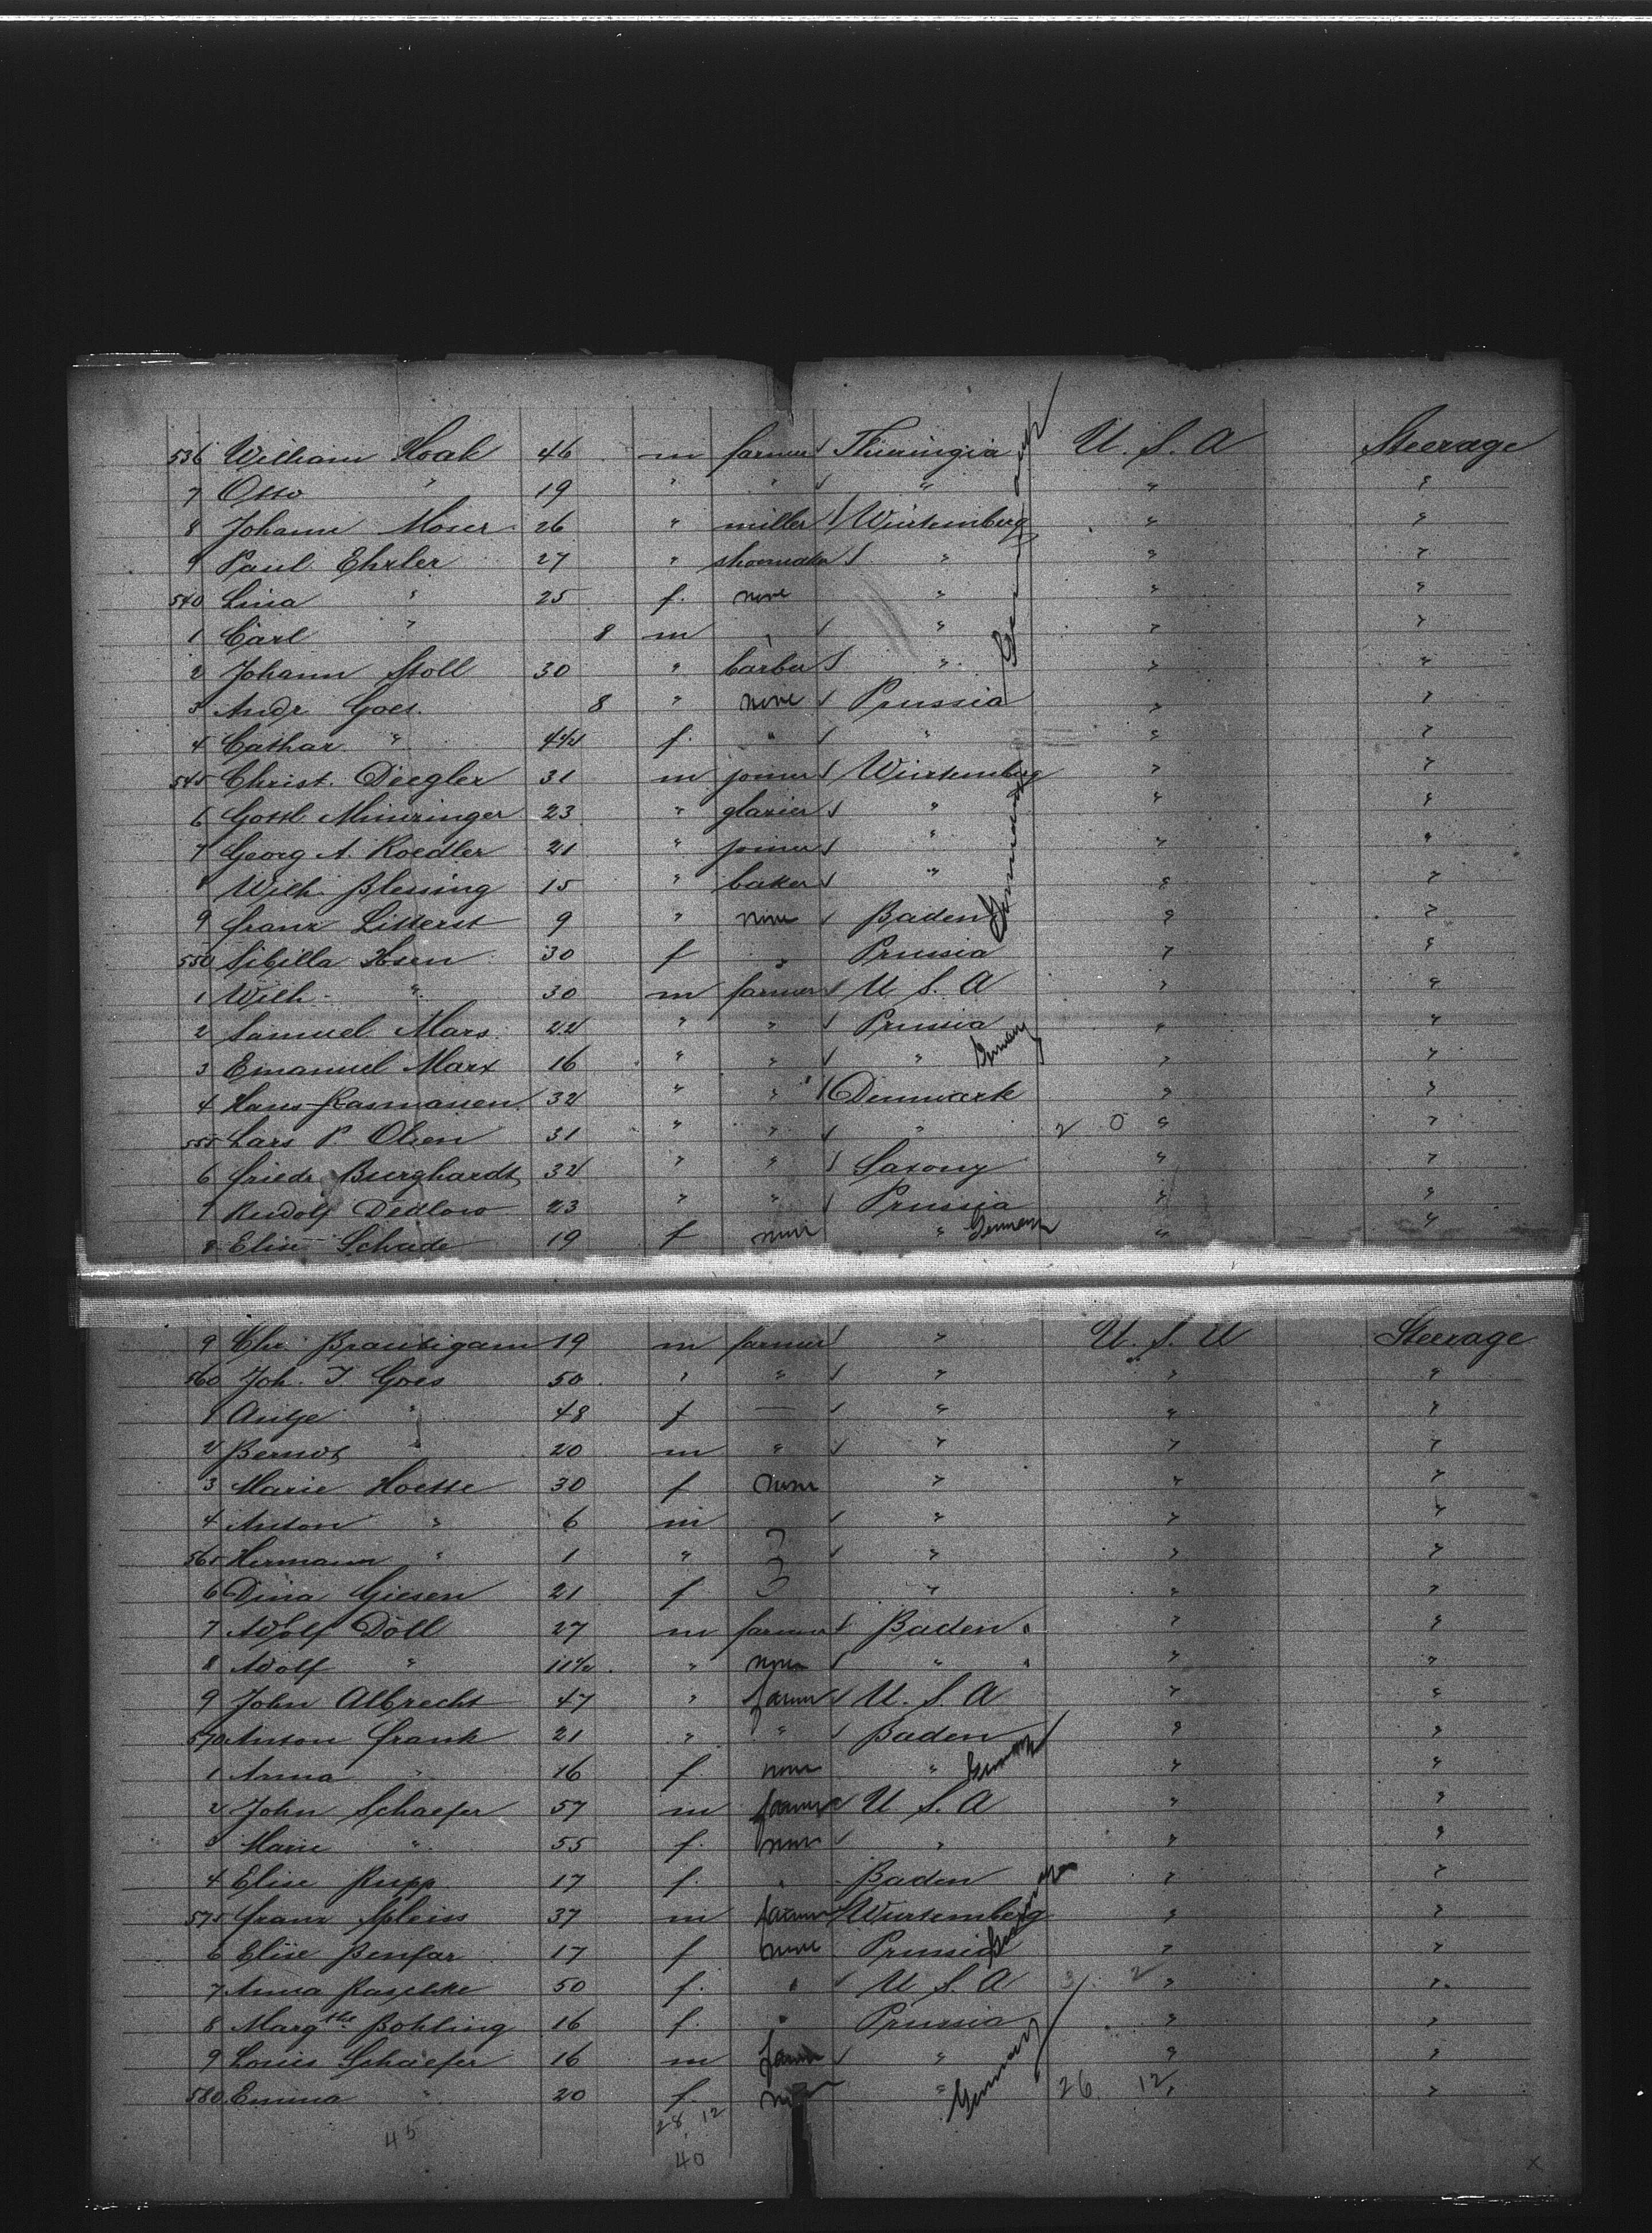 536 William Koal 46 m farmer Thüringia U. S. A Steerage
7 Otto " 19 " " " " "
8 Johann Moser 26 " miller Würtemberg " "
9 Paul Ehrler 27 " shoemaker " " "
540 Lina " 25 f. none " " "
1 Carl " 8 m " " " "
2 Johann Stoll 30 " barber " " "
3 Andr. Goes. 8 " none Prussia " "
4 Cathar " 4½ f. " " " "
545 Christ. Deegler 31 m joiner Würtemberg " "
6 Gottl. Minzinger 23 " glazier " " "
7 Georg A. Roedler 21 " joiner " " "
8 Wilh. Blessing 15 " baker " " "
9 Franz Litterst 9 " none Baden " "
Germany
550 Sibilla 30 f " Prussia " "
1 Wilh. " 30 m farmer U. S. A " "
2 Samuel Marx 22 " " Prussia " "
3 Emanuel Marx 16 " " " Germany " "
4 Hans Rasmassen 32 " " Denmark " "
555 Lars P. Olsen 31 " " " 2 0 " "
6 Friedr. Burghardt 32 " " Saxony " "
7 Rudolf Dedlow 23 " " Prussia " "
8 Elise Schade 19 f none " Germany " "
9 Chr. Brautigam 19 m farmer " U. S. A Steerage
560 Joh. J. Goes 50 " " " " "
1 Antje " 48 f — " " "
2 Berndt " 20 m " " " "
3 Marie Hoette 30 f none " " "
4 Anton " 6 m " " "
565 Hermann " 1 " " " "
6 Dina Giesen 21 f. " " "
7 Adolf Döll 27 m farmer Baden " "
8 Adolf " 11½ " none " " "
9 John Albrecht 47 " farmer U. S. A " "
570 Anton Frank 21 " " Baden " "
1 Anna " 16 f. none " Germany " "
2 John Schaefer 57 m farmer U. S. A " "
3 Marie " 55 f. none " " "
4 Elise Rupp 17 f. " Baden " "
575 Franz Spleiss 37 m farmer Würtemberg " "
6 Elise Benfar 17 f none Prussia " "
7 Anna Raschke 50 f. " U. S. A 3 2 " "
8 Margthe Bohling 16 f. " Prussia " "
9 Louis Schaefer 16 m farmer " " "
580 Emma " 20 f. " Germany 26 12 " "
45 28 12
40
x